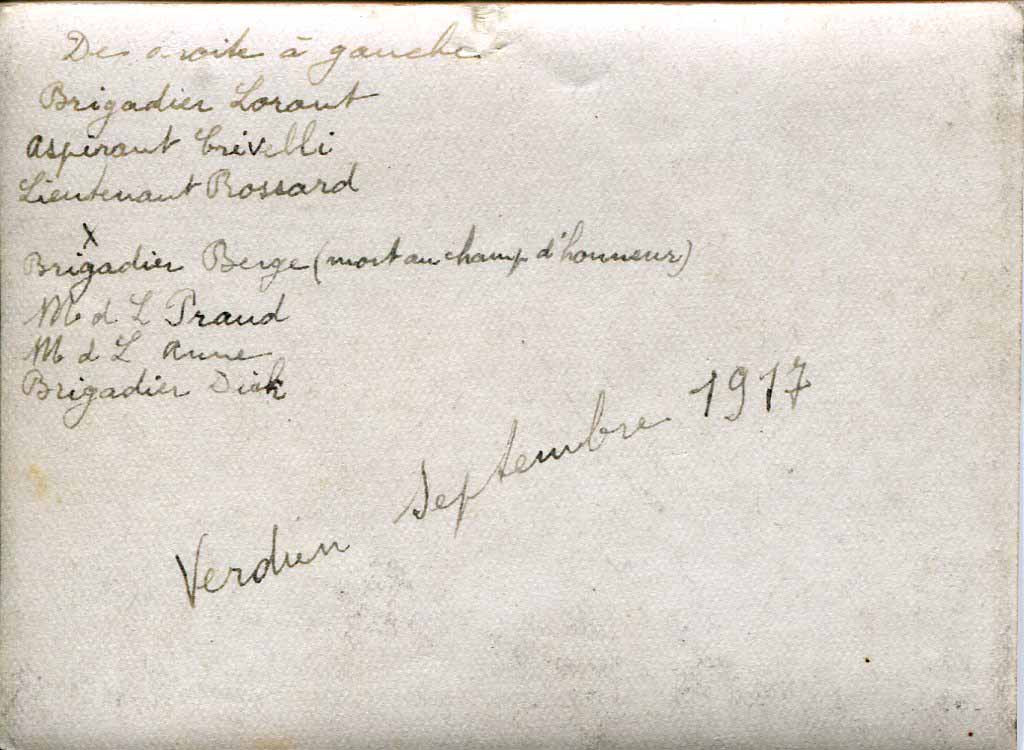 De droite à gauche
Brigadier Lorant
Aspirant Crivelli
Lieutenant Rossard
X
Brigadier Berge (mort au champ d'honneur)
M d L Praud
M d L Anne
Brigadier Dick
Verdun Septembre 1917